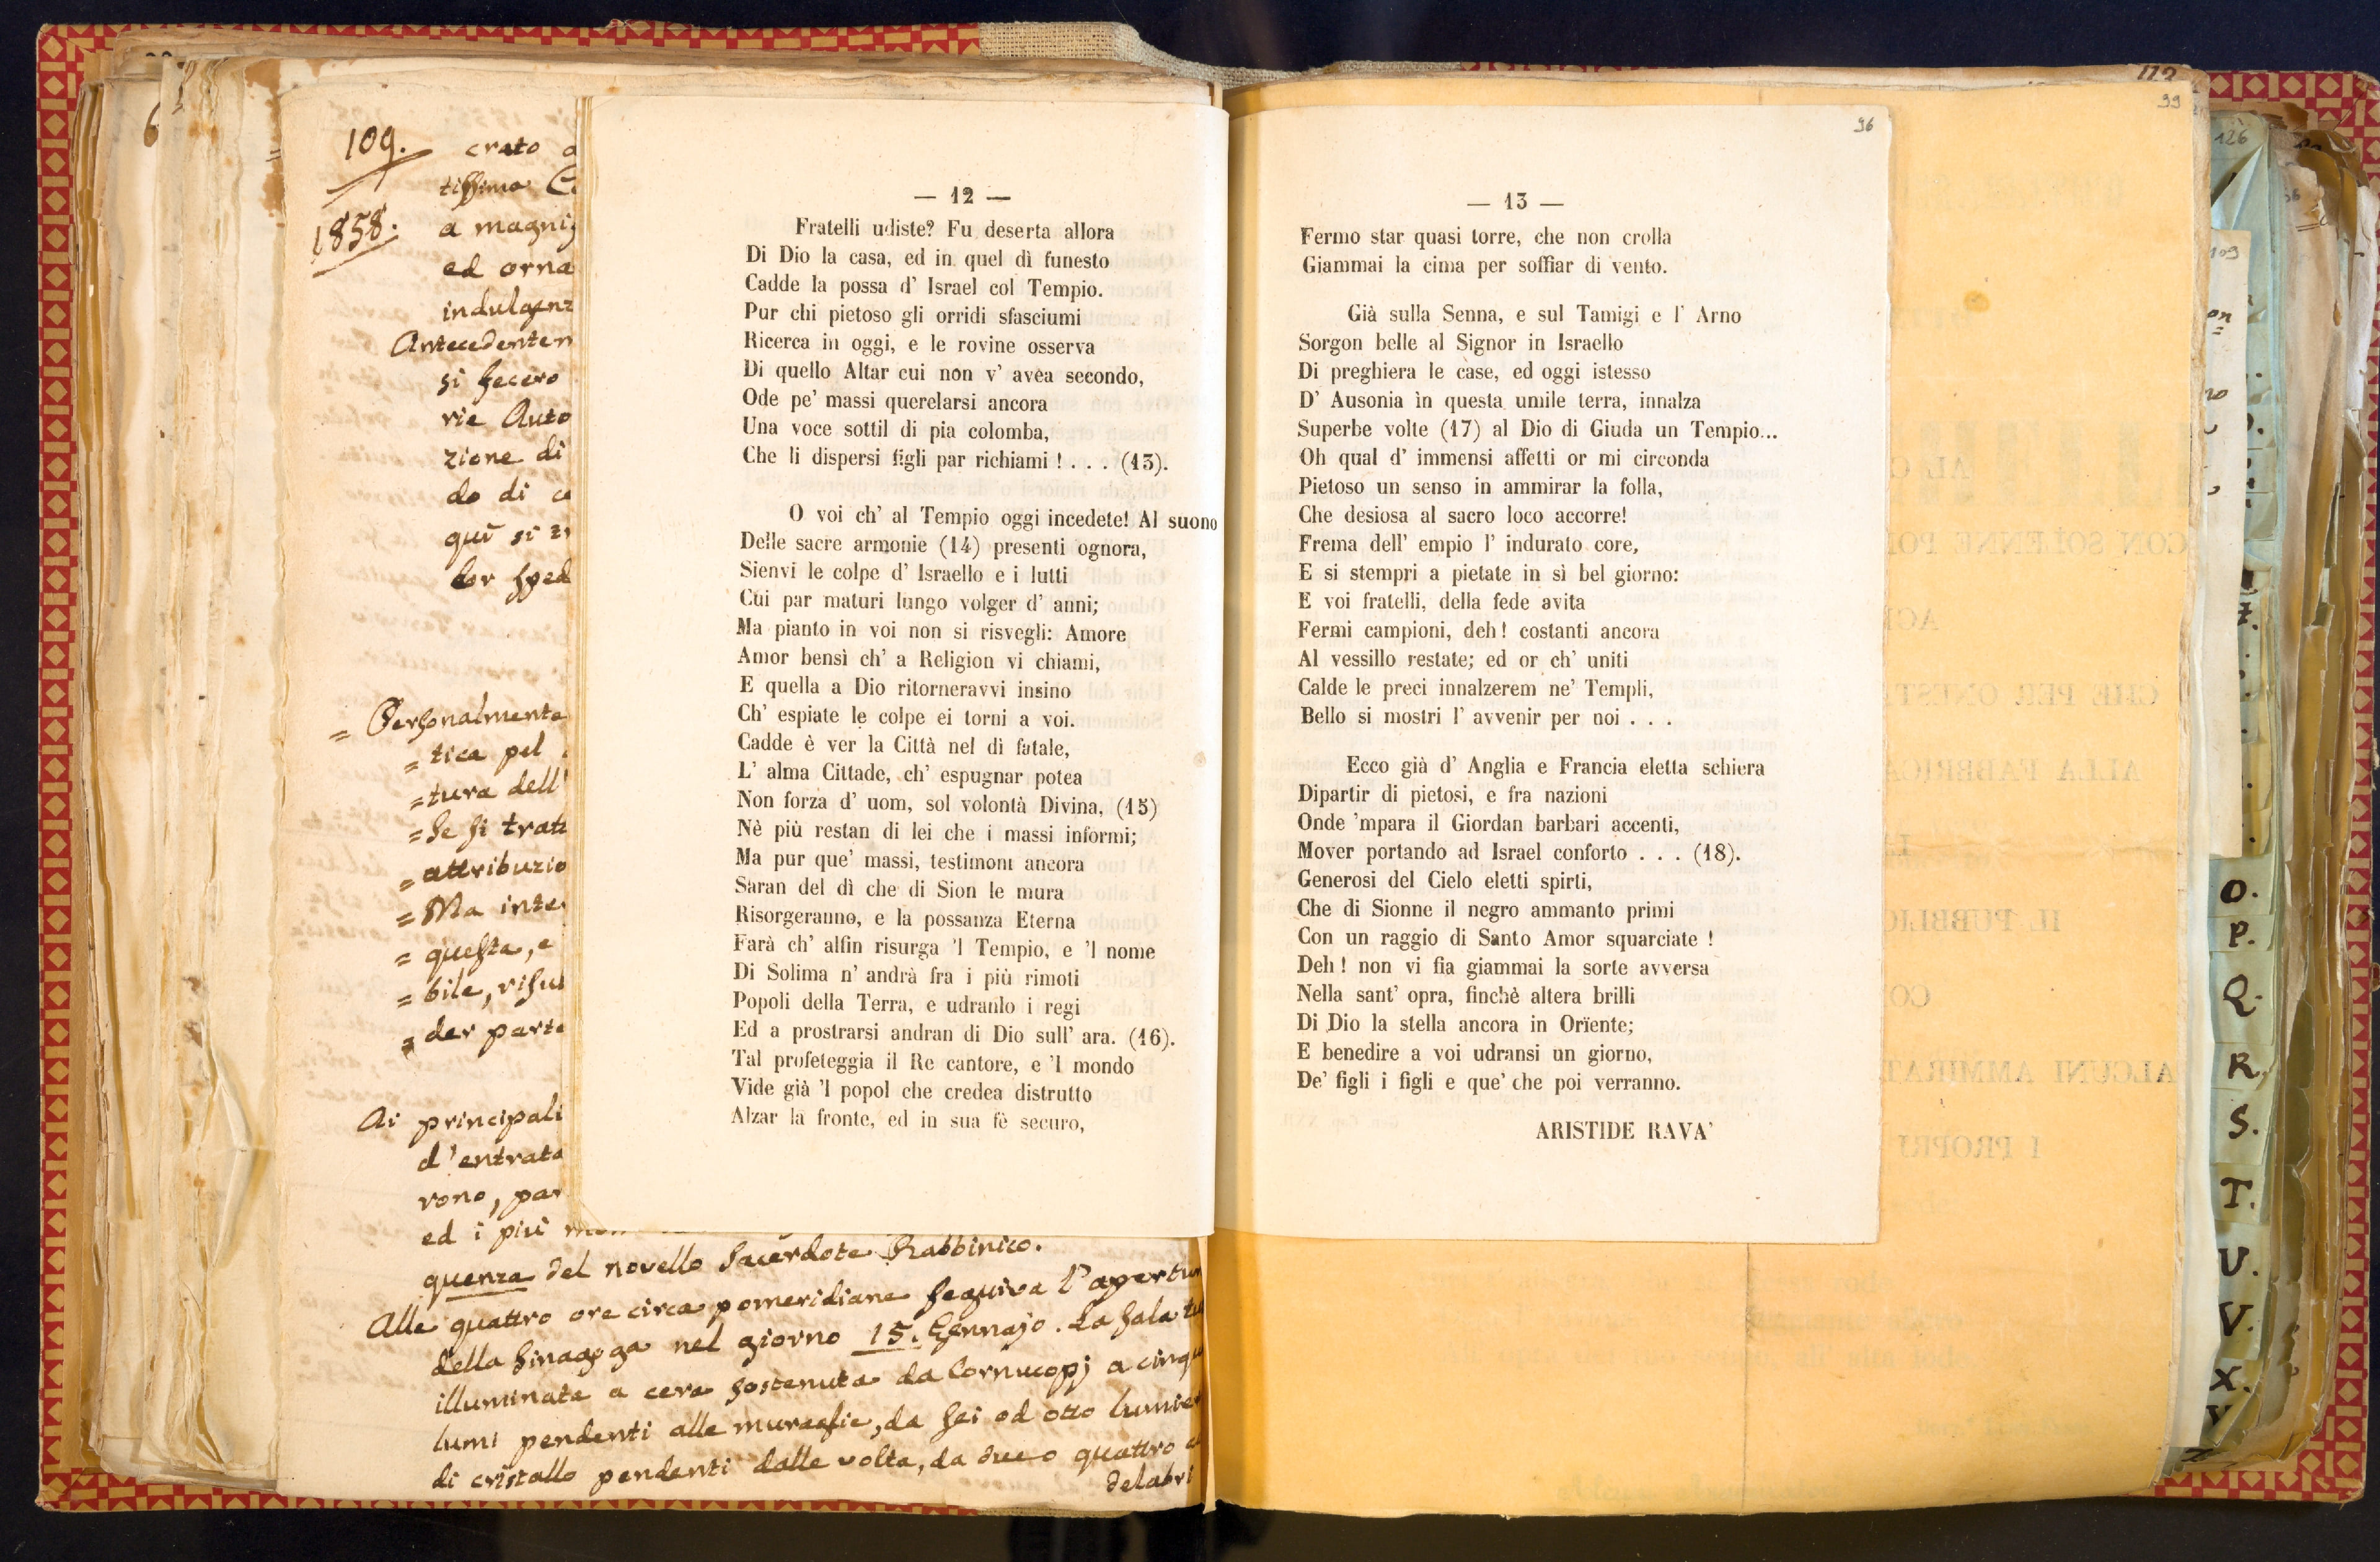 109.
1858.
crato
tissima
a magni
ed orna
indulgenz
Antecedentem
si fecero
rie Auto
zione di
do di
quì si
lor sped
= Personalmente
= tica pel
= tura dell'
= se si tratt
= attribuzio
= Ma inte
= questa, e
= bile, risul
= der parte
Ai principali
d'entrata
vono, par
ed i più
quenza del novello Sacerdote Rabbinico.
Alle quattro ore circa pomeridiane seguiva l'apertur
della Sinagoga nel giorno 15. Gennajo. La Sala tu
illuminata a cera sostenuta da Cornucopj a cinqu
lumi pendenti alle muraglie, da sei od otto lumie
di cristallo pendenti dalle volta, da due o quattro
delabri
— 12 —
Fratelli udiste? Fu deserta allora
Di Dio la casa, ed in quel dì funesto
Cadde la possa d' Israel col Tempio.
Pur chi pietoso gli orridi sfasciumi
Ricerca in oggi, e le rovine osserva
Di quello Altar cui non v' avea secondo,
Ode pe' massi querelarsi ancora
Una voce sottil di pia colomba,
Che li dispersi figli par richiami ! . . . (13).
O voi ch' al Tempio oggi incedete! Al suono
Delle sacre armonie (14) presenti ognora,
Sienvi le colpe d' Israello e i lutti
Cui par maturi lungo volger d' anni;
Ma pianto in voi non si risvegli: Amore
Amor bensì ch' a Religion vi chiami,
E quella a Dio ritorneravvi insino
Ch' espiate le colpe ei torni a voi.
Cadde è ver la Città nel dì fatale,
L' alma Cittade, ch' espugnar potea
Non forza d' uom, sol volontà Divina, (15)
Nè più restan di lei che i massi informi;
Ma pur que' massi, testimoni ancora
Saran del dì che di Sion le mura
Risorgeranno, e la possanza Eterna
Farà ch' alfin risurga 'l Tempio, e 'l nome
Di Solima n' andrà fra i più rimoti
Popoli della Terra, e udranlo i regi
Ed a prostrarsi andran di Dio sull' ara. (16).
Tal profeteggia il Re cantore, e 'l mondo
Vide già 'l popol che credea distrutto
Alzar la fronte, ed in sua fè securo,
112
99
96
— 13 —
Fermo star quasi torre, che non crolla
Giammai la cima per soffiar di vento.
Già sulla Senna, e sul Tamigi e l' Arno
Sorgon belle al Signor in Israello
Di preghiera le case, ed oggi istesso
D' Ausonia ìn questa umile terra, innalza
Superbe volte (17) al Dio di Giuda un Tempio...
Oh qual d' immensi affetti or mi circonda
Pietoso un senso in ammirar la folla,
Che desiosa al sacro loco accorre!
Frema dell' empio l' indurato core,
E si stempri a pietate in sì bel giorno:
E voi fratelli, della fede avita
Fermi campioni, deh ! costanti ancora
Al vessillo restate; ed or ch' uniti
Calde le preci innalzerem ne' Templi,
Bello si mostri l' avvenir per noi . . .
Ecco già d' Anglia e Francia eletta schiera
Dipartir di pietosi, e fra nazioni
Onde 'mpara il Giordan barbari accenti,
Mover portando ad Israel conforto . . . (18).
Generosi del Cielo eletti spirti,
Che di Sionne il negro ammanto primi
Con un raggio di Santo Amor squarciate !
Deh ! non vi fia giammai la sorte avversa
Nella sant' opra, finchè altera brilli
Di Dio la stella ancora in Orïente;
E benedire a voi udransi un giorno,
De' figli i figli e que' che poi verranno.
ARISTIDE RAVA'
126
109
O.
P.
Q.
R.
S.
T.
U.
V.
X.